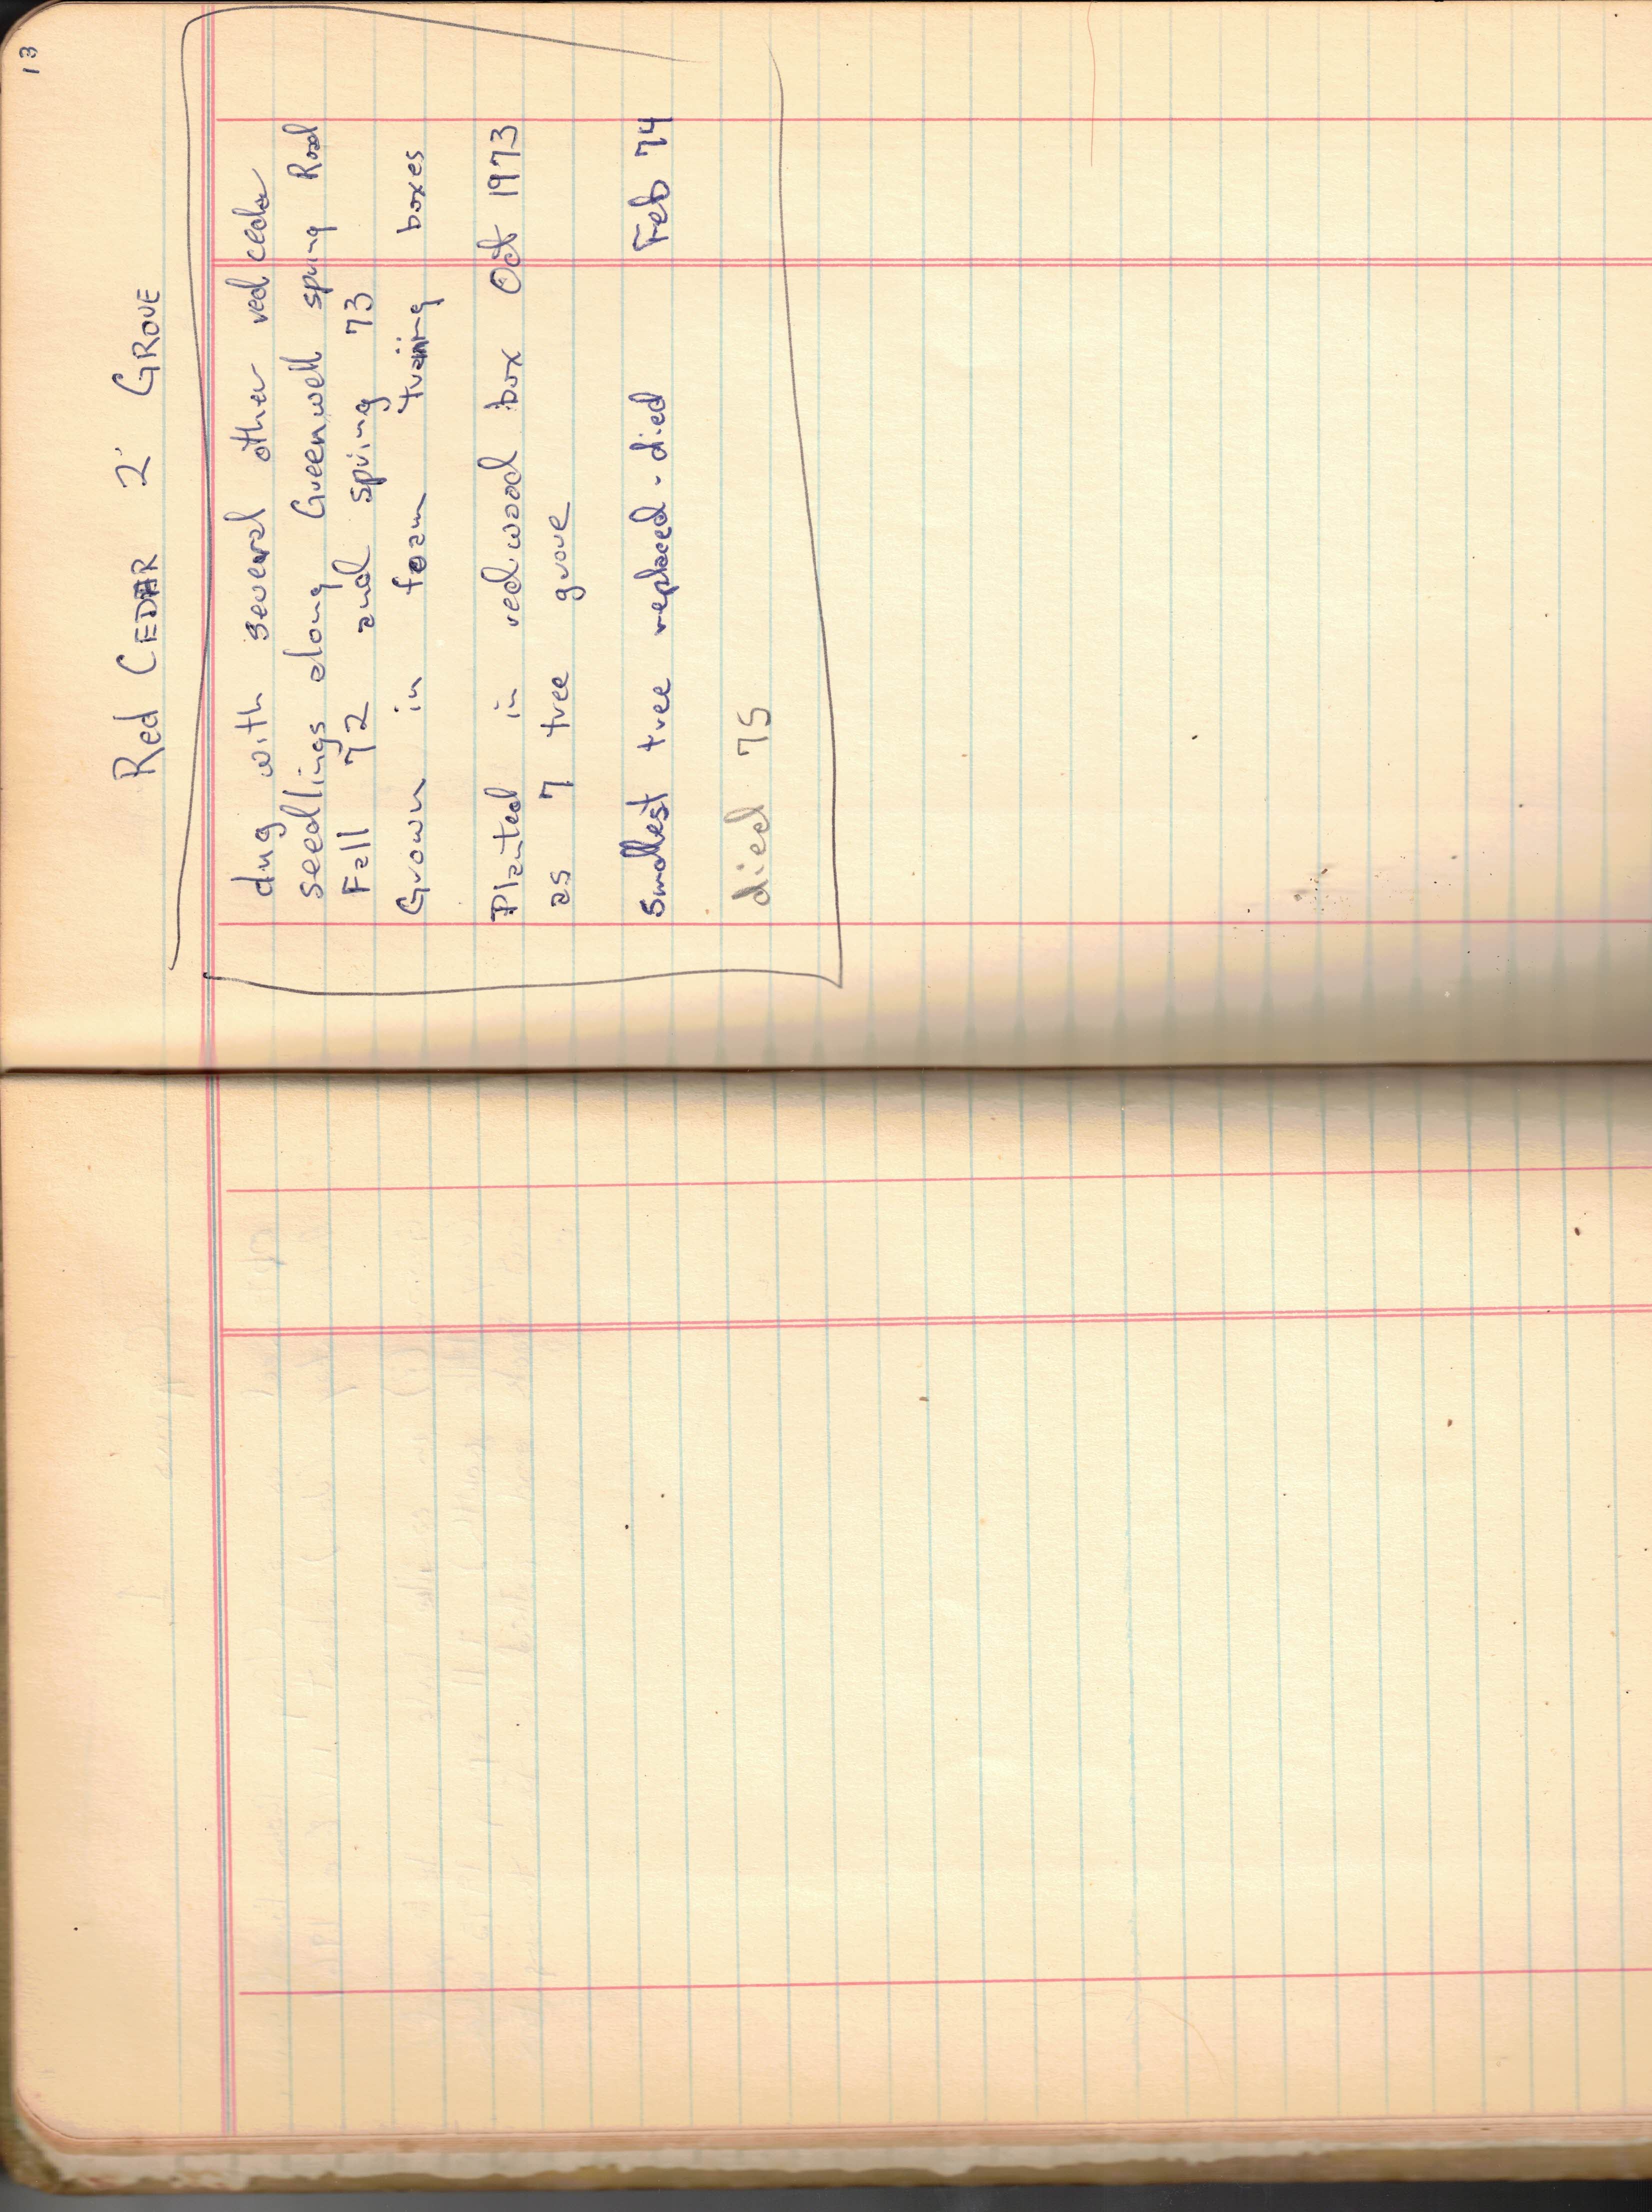 13
Red CEDAR 2 GROVE
dug with several other red ceda
seedlings along Greenwell spring Road
Fall 72 and spring 73
Grown in foam traiing boxes
Planted in redwood box Oct 1973
as 7 tree grove
smallest tree replaced - died Feb 74
died 75